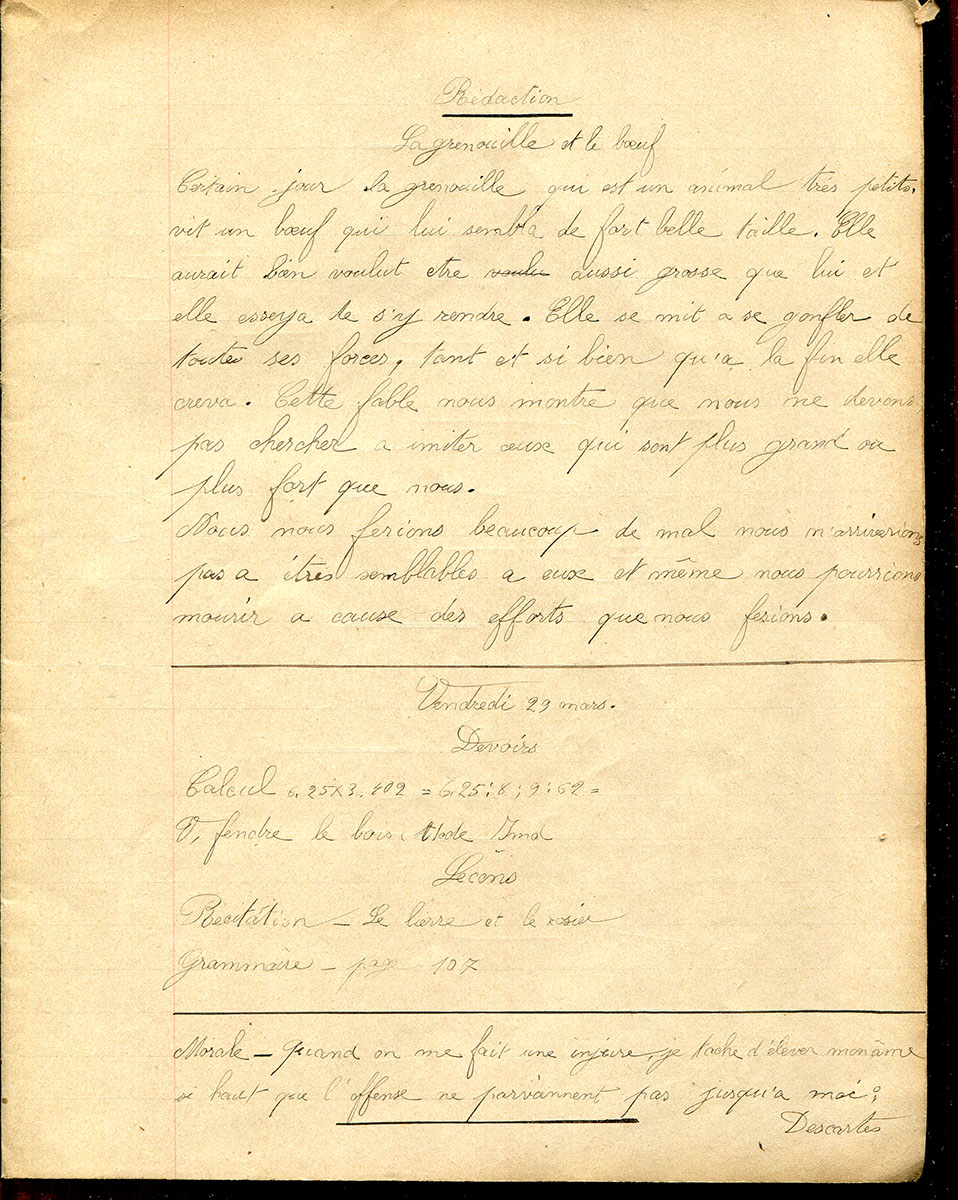 Rédaction
La grenouille et le bœuf
Certain jour la grenouille qui est un animal très petits.
vit un bœuf qui lui sembla de fort belle taille. Elle
aurait bien voulut etre voulu aussi grosse que lui et
elle esseya de s'y rendre. Elle se mit a se gonfler de
toute ses forces, tant et si bien qu'a la fin elle
creva. Cette fable nous montre que nous ne devons
pas chercher a imiter ceux qui sont plus grand ou
plus fort que nous.
Nous nous ferions beaucoup de mal nous n'arriverions
pas a êtres semblables a eux et même nous pourrions
mourir a cause des efforts que nous fesions.
Vendredi 29 mars.
Devoirs
Calcul 6,25x3,402 = 6,25:8; 9:62 =
V, fendre le bois Mode Ind
Leçons
Récitation – Le lierre et le rosier
Grammaire – page 107
Morale – Quand on me fait une injure, je tache d'élever mon âme
si haut que l'offense ne parviennent pas jusqu'a moi:
Descartes